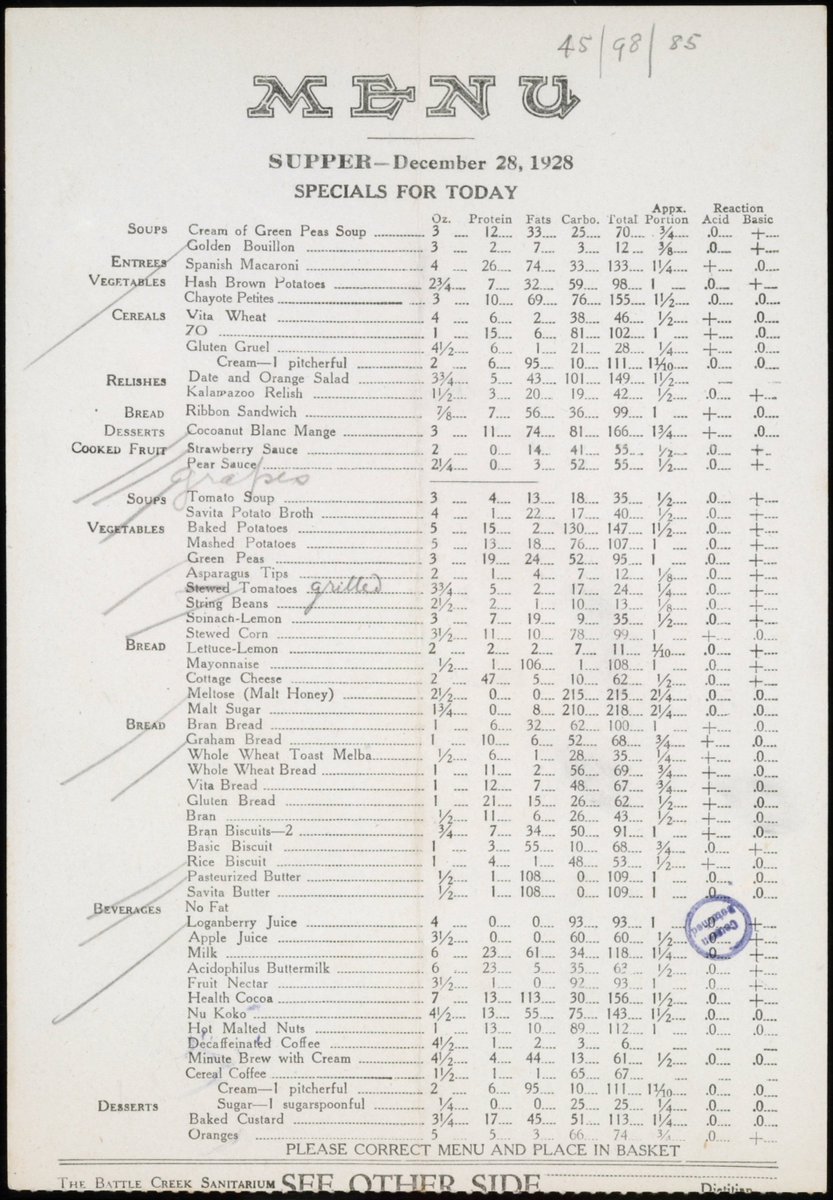 45/98/85
MENU
SUPPER—December 28, 1928
SPECIALS FOR TODAY
Appx. Reaction
Oz. Protein Fats Carbo. Total Portion Acid Basic
SOUPS Cream of Green Peas Soup 3 12 33 25 70 ¾ .0 +
Golden Bouillon 3 2 7 3 12 ⅜ .0 +
ENTREES Spanish Macaroni 4 26 74 33 133 1¼ + .0
VEGETABLES Hash Brown Potatoes 2¾ 7 32 59 98 1 .0 +
Chayote Petites 3 10 69 76 155 1½ .0 .0
CEREALS Vita Wheat 4 6 2 38 46 ½ + .0
ZO 1 15 6 81 102 1 + .0
Gluten Gruel 4½ 6 1 21 28 ¼ + .0
Cream—1 pitcherful 2 6 95 10 111 1⅒ .0 .0
RELISHES Date and Orange Salad 3¾ 5 43 101 149 1½
Kalamazoo Relish 1½ 3 20 19 42 ½ .0 +
BREAD Ribbon Sandwich ⅞ 7 56 36 99 1 + .0
DESSERTS Cocoanut Blanc Mange 3 11 74 81 166 1¾ + .0
COOKED FRUIT Strawberry Sauce 2 0 14 41 55 ½ .0 +
Pear Sauce 2¼ 0 3 52 55 ½ .0 +
grapes
SOUPS Tomato Soup 3 4 13 18 35 ½ .0 +
Savita Potato Broth 4 1 22 17 40 ½ .0 +
VEGETABLES Baked Potatoes 5 15 2 130 147 1½ .0 +
Mashed Potatoes 5 13 18 76 107 1 .0 +
Green Peas 3 19 24 52 95 1 .0 +
Asparagus Tips 2 1 4 7 12 ⅛ .0 +
Stewed Tomatoes grilled 3¾ 5 2 17 24 ¼ .0 +
String Beans 2½ 2 1 10 13 ⅛ .0 +
Spinach-Lemon 3 7 19 9 35 ½ .0 +
Stewed Corn 3½ 11 10 78 99 1 + .0
BREAD Lettuce-Lemon 2 2 2 7 11 ⅒ .0 +
Mayonnaise ½ 1 106 1 108 1 .0 +
Cottage Cheese 2 47 5 10 62 ½ .0 +
Meltose (Malt Honey) 2½ 0 0 215 215 2¼ .0 .0
Malt Sugar 1¾ 0 8 210 218 2¼ .0 .0
BREAD Bran Bread 1 6 32 62 100 1 + .0
Graham Bread 1 10 6 52 68 ¾ + .0
Whole Wheat Toast Melba ½ 6 1 28 35 ¼ + .0
Whole Wheat Bread 1 11 2 56 69 ¾ + .0
Vita Bread 1 12 7 48 67 ¾ + .0
Gluten Bread 1 21 15 26 62 ½ + .0
Bran ½ 11 6 26 43 ½ + .0
Bran Biscuits—2 ¾ 7 34 50 91 1 + .0
Basic Biscuit 1 3 55 10 68 ¾ .0 +
Rice Biscuit 1 4 1 48 53 ½ + .0
Pasteurized Butter ½ 1 108 0 109 1 .0 .0
Savita Butter ½ 1 108 0 109 1 .0 .0
BEVERAGES No Fat
Loganberry Juice 4 0 0 93 93 1 .0 +
Apple Juice 3½ 0 0 60 60 ½ .0 +
Milk 6 23 61 34 118 1¼ .0 +
Acidophilus Buttermilk 6 23 5 35 63 ½ .0 +
Fruit Nectar 3½ 1 0 92 93 1 .0 +
Health Cocoa 7 13 113 30 156 1½ .0 +
Nu Koko 4½ 13 55 75 143 1½ .0 .0
Hot Malted Nuts 1 13 10 89 112 1 .0 .0
Decaffeinated Coffee 4½ 1 2 3 6
Minute Brew with Cream 4½ 4 44 13 61 ½ .0 .0
Cereal Coffee 1½ 1 1 65 67
Cream—1 pitcherful 2 6 95 10 111 1⅒ .0 .0
DESSERTS Sugar—1 sugarspoonful ¼ 0 0 25 25 ¼ .0 .0
Baked Custard 3¼ 17 45 51 113 1¼ .0 .0
Oranges 5 5 3 66 74 ¾ .0 +
PLEASE CORRECT MENU AND PLACE IN BASKET
THE BATTLE CREEK SANITARIUM SEE OTHER SIDE Dietitian